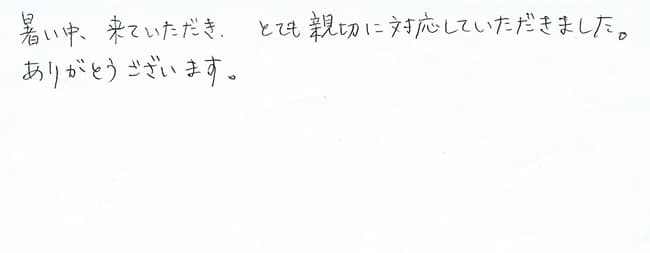 暑い中、来ていただき、とても親切に対応していただきました。
ありがとうございます。